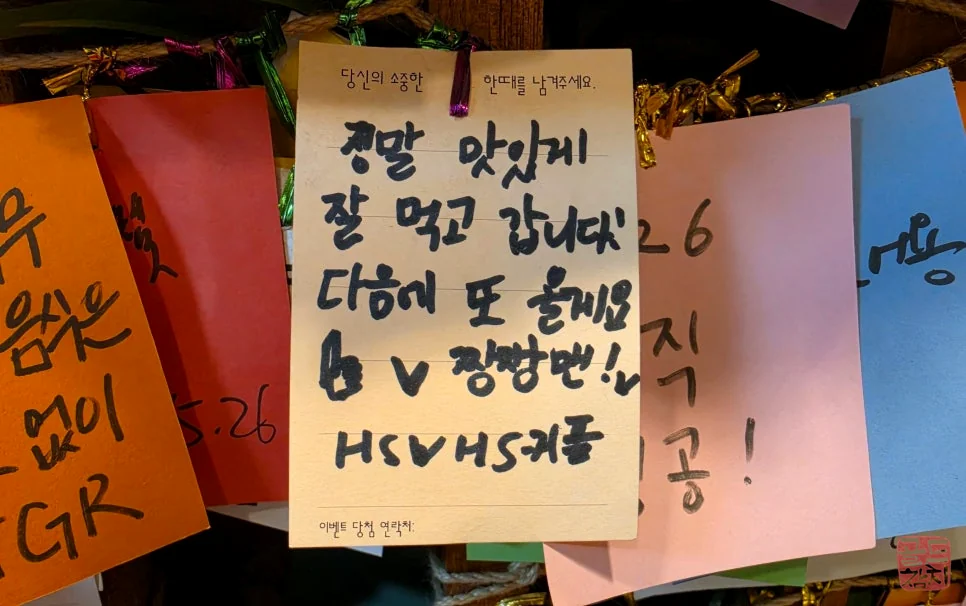 당신의 소중한 한때를 남겨주세요.
정말 맛있게
잘 먹고 갑니다!
다음에 또 올게요
짱짱맨!
HS♥HS커플
이벤트 당첨 연락처:
음식은
없이
GR
5.26
26
직
공!